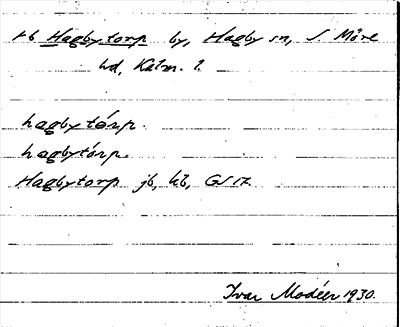 Hb Hagbytorp by, Hagby sn, S. Möre
hd, Kalm. l.
hagbytórp.
hagbytórp.
Hagbytorp jb, kb, GV 12
Ivar Modéer 1930.